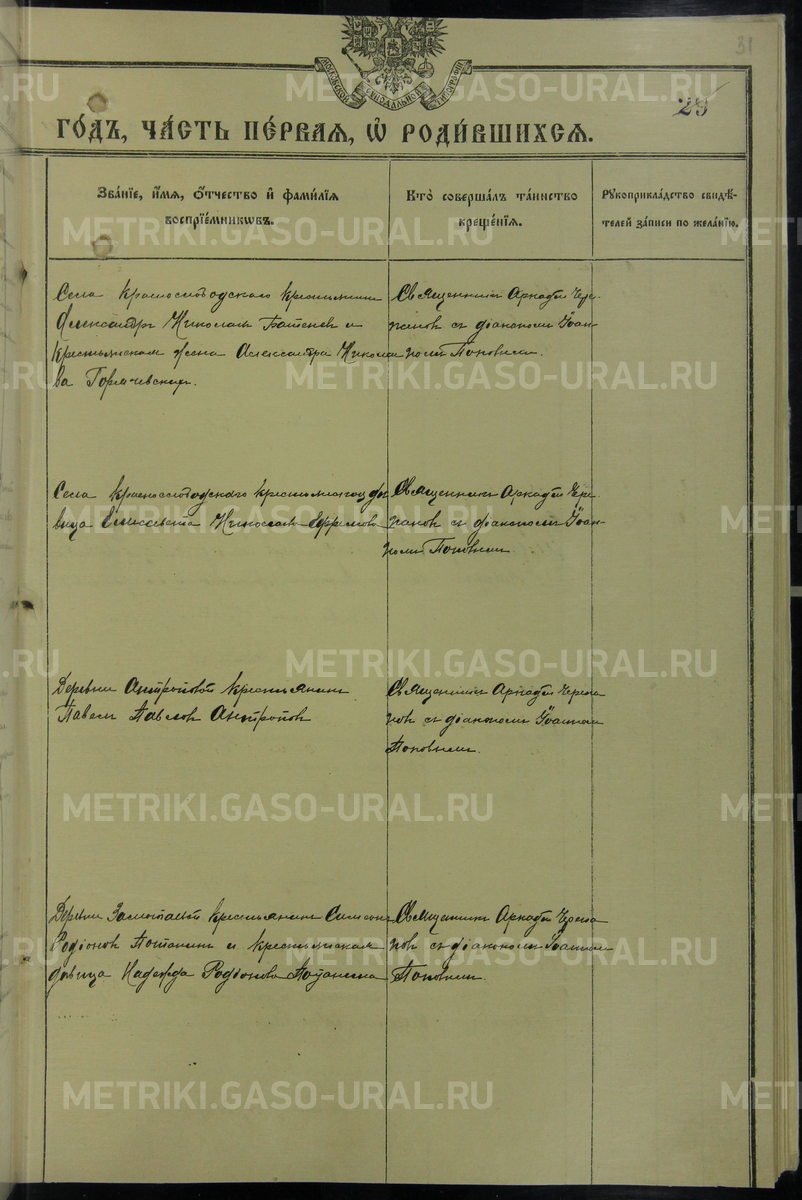 31
29
МОСКОВСКОЙ СУНОДАЛЬНОЙ ТИПОГРАФІИ
ГО́ДЪ, ЧА́СТЬ ПЕ́РВАЯ, Ѽ РОДИ́ВШИХСЯ.
Зва́нїе, и҆́мя, ѻ҆́тчество и҆ фами́лїя
воспрїе́мникѡвъ.
Кто̀ соверша́лъ та́инство
креще́нїя.
Рꙋкоприкла́дство свидѣ́-
телей за́писи по жела́нїю.
Села Краснослободскаго крестьянинъ
Александръ Николаевъ и
крестьянская жена Александра Никола
ва
Священникъ Аркадій Чере-
пановъ съ діакономъ Іоан-
номъ Поповымъ.
Села Краснослободскаго крестьянская дѣ
вица Елисавета Николаева Ефремова
Священникъ Аркадій Чере
пановъ съ діакономъ Іоан-
номъ Поповымъ.
Деревни Антроповой крестьянинъ
Павелъ Павловъ Антроповъ
Священникъ Аркадій Черепа
новъ съ діакономъ Іоанномъ
Поповымъ.
Деревни крестьянинъ Симеонъ
Родіоновъ Потанинъ и крестьянская
дѣвица Надежда Родіонова Потанина
Священникъ Аркадій Черепа
новъ съ діакономъ Іоанномъ
Поповымъ.
METRIKI.GASO-URAL.RU